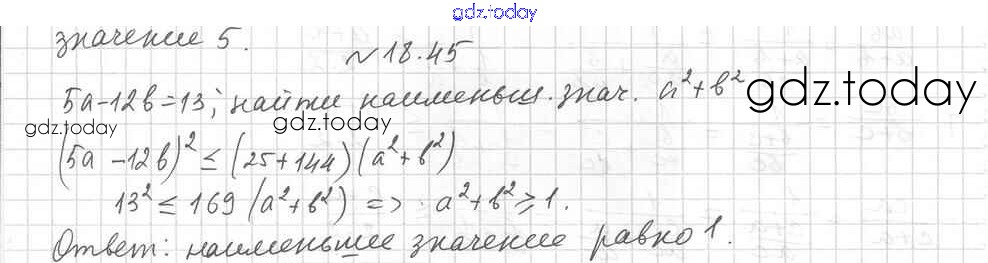 gdz.today
значение 5.
№18.45
5a-12b=13; найти наименьш. знач. a²+b² gdz.today
gdz.today gdz.today
(5a -12b)² ≤ (25+144)(a²+b²)
13² ≤ 169 (a²+b²) => a²+b² ≥ 1.
Ответ: наименьшее значение равно 1.